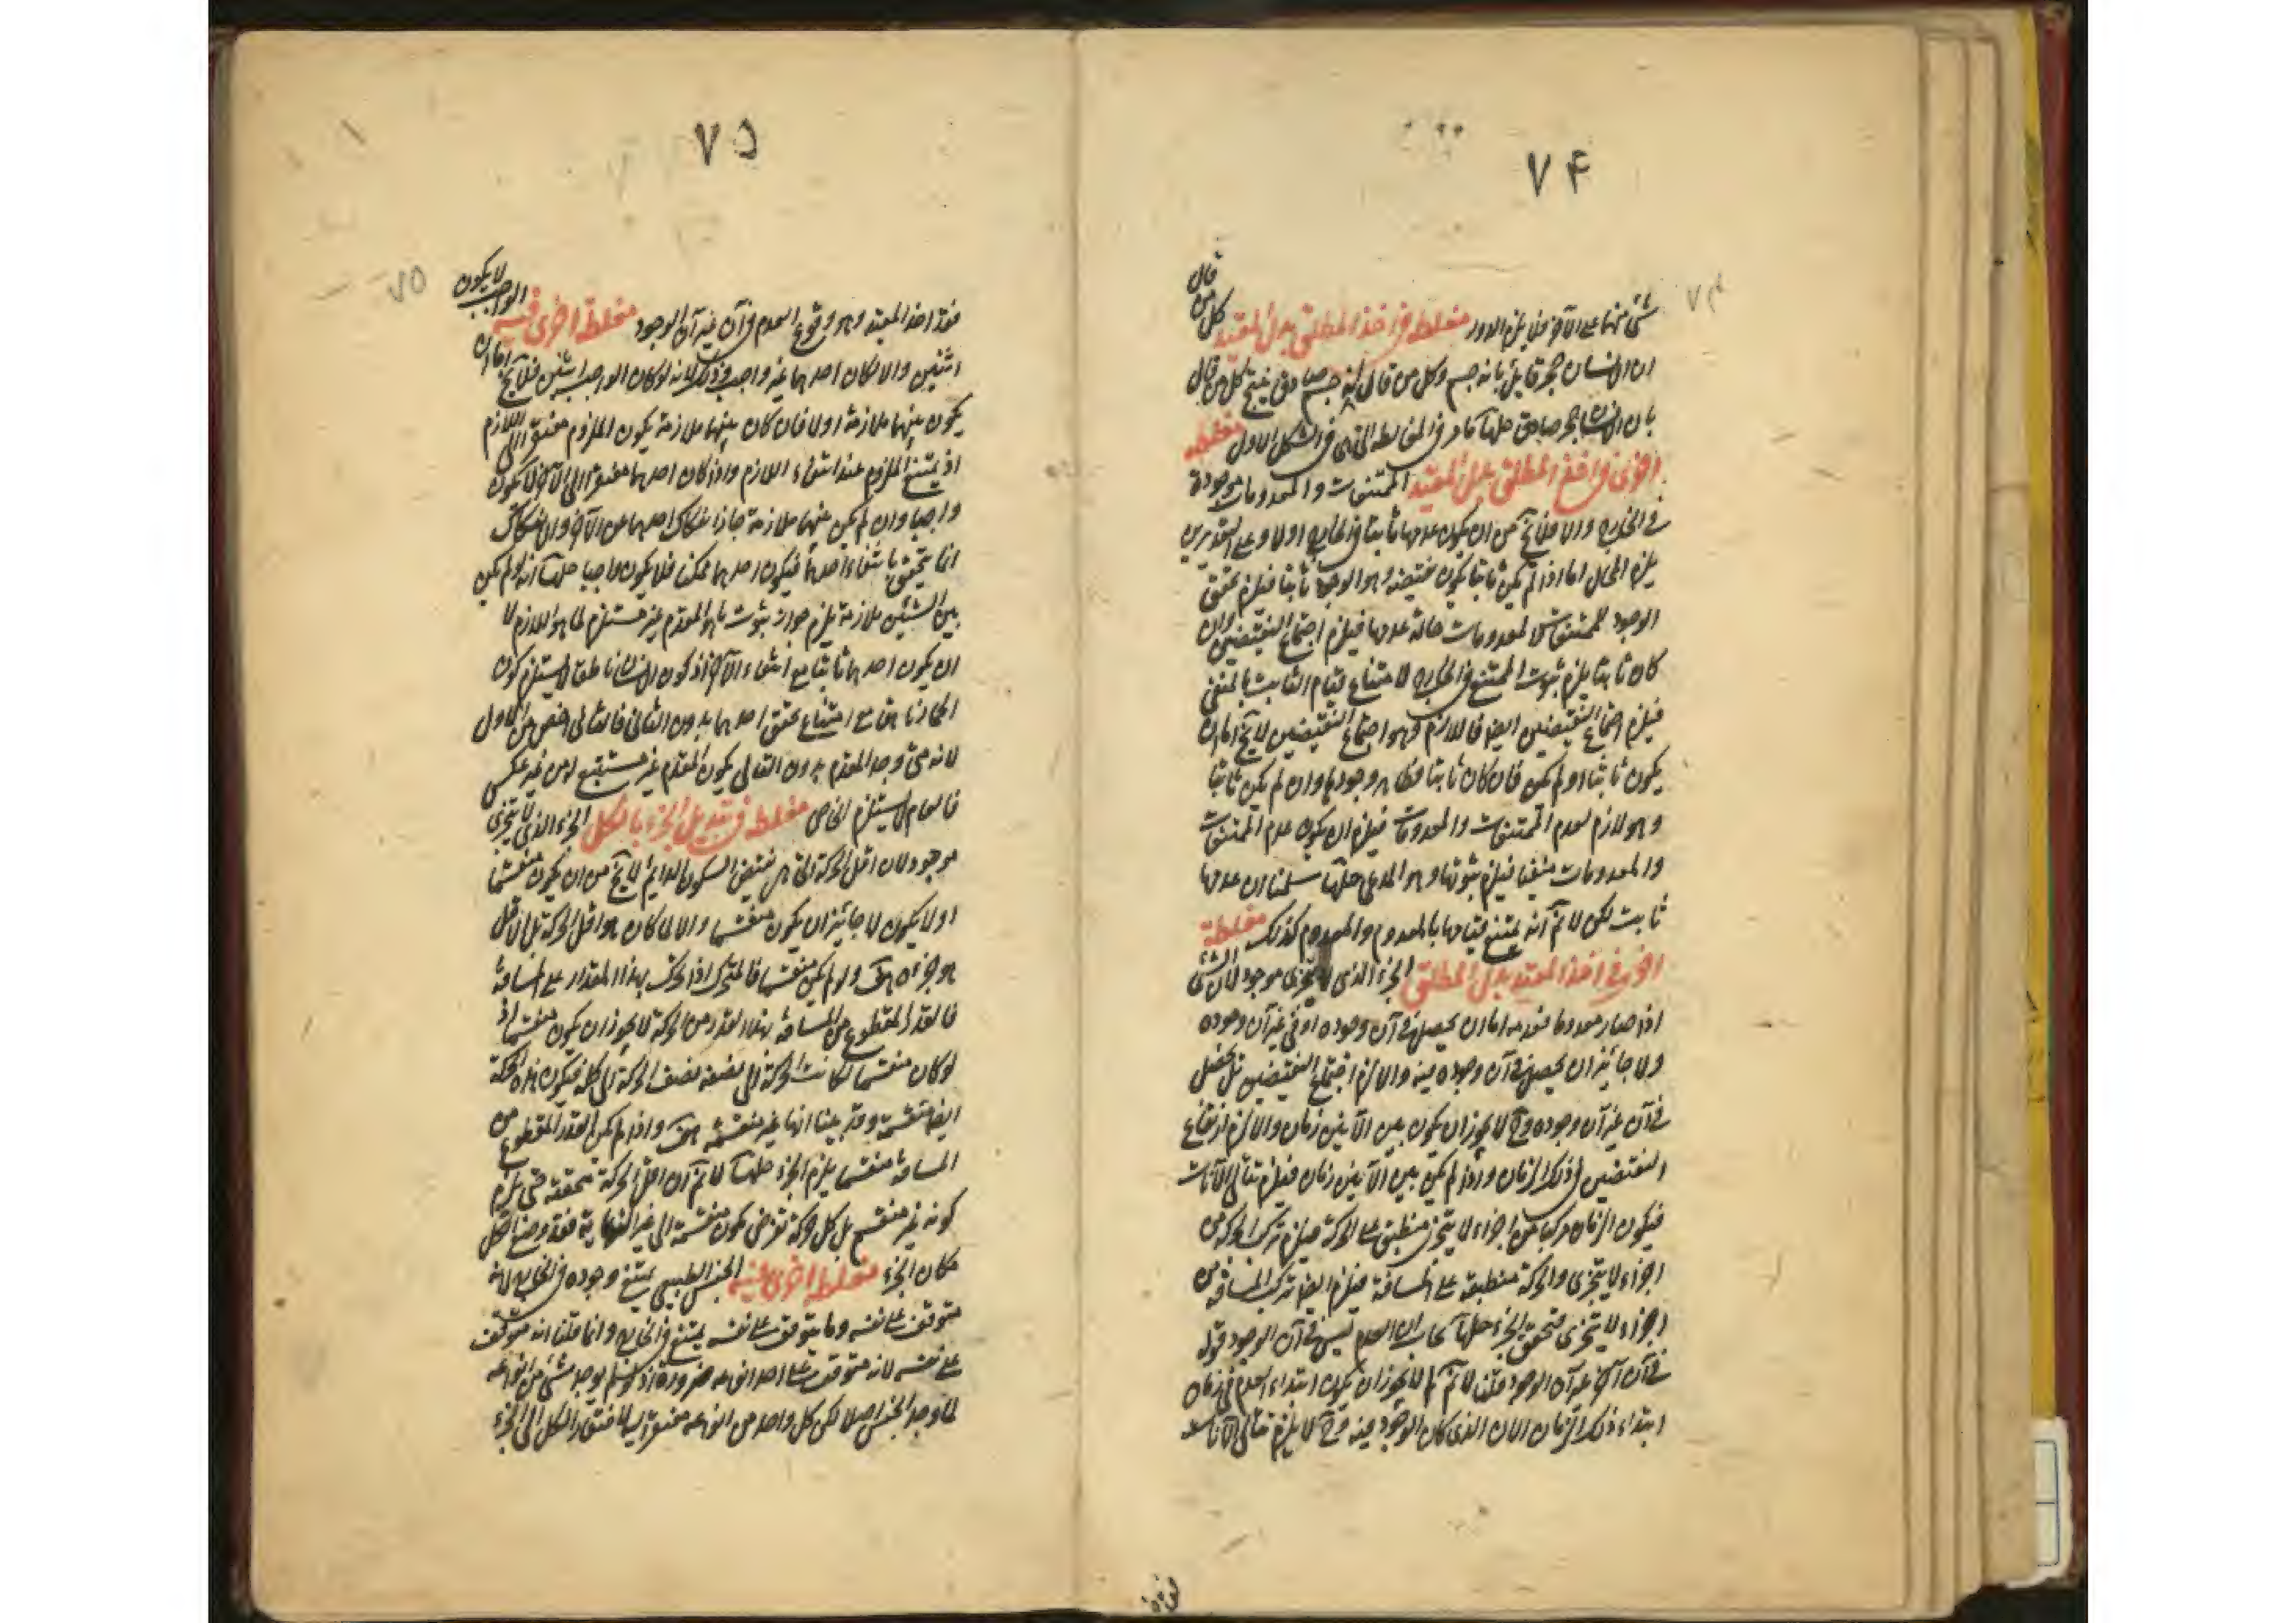 ٧۴
٧۴
شئ منهما على الآخر فلا يلزم الدور مغلطة فى اخذ المطلق بدل المقيد كل من قال
ان الانسان حجر قايل بانه جسم وكل من قال انه جسم صادق ينتج كل من قال
بان الانسان حجر صادق حلها كما مر فى المغالطة التى فى الشكل الاول مغلطة
اخرى فى اخذ المطلق بدل المقيد الممتنعات والمعدومات موجودة
فى الخارج والا فلا يخ من ان يكون عدمها ثابتا فى الخارج اولا وعلى التقديرين
يلزم المحال اما اذا لم يكن ثابتا يكون نقيضه وهو الوجود ثابتا فيلزم تحقق
الوجود للممتنعات والمعدومات حالة عدمها فيلزم اجتماع النقيضين وان
كان ثابتا يلزم ثبوت الممتنع فى الخارج لامتناع قيام الثابت بالمنفى
فيلزم اجتماع النقيضين ايضا فاللازم وهو اجتماع النقيضين لا يخ اما ان
يكون ثابتا او لم يكن فان كان ثابتا وجودها وان لم يكن ثابتا
وهو لازم لعدم الممتنعات والمعدومات فيلزم ان يكون عدم الممتنعات
والمعدومات منفيا فيلزم ثبوتها وهو المدعى حلها سلمنا ان عدمها
ثابت لكن لا نم انه يمتنع قيامها بالمعدوم والمعدوم كذلك مغلطة
اخرى فى اخذ المقيد بدل المطلق الجزء الذى لا يتجزى موجود لان الشئ
اذا صار معدوما فعدمه اما ان يحصل فى آن وجوده او فى غير آن وجوده
ولا جائز ان يحصل فى آن وجوده فيه والا لزم اجتماع النقيضين بل يحصل
فى آن غير آن وجوده وح لا يجوز ان يكون بين الآنين زمان والا لزم ارتفاع
النقيضين فى ذلك الزمان واذا لم يكن بين الآنين زمان فيلزم تتالى الآنات
فيكون الزمان مركبا من اجزاء لا يتجزى منطبق على الحركة فيلزم تركب الحركة من
اجزاء لا يتجزى والحركة منطبقة على المسافة فيلزم ايضا تركب المسافة من
اجزاء لا يتجزى فتحقق الجزء حلها ان العدم ليس فى آن الوجود قوله
فى آن آخر غير آن الوجود قلنا لا نم لم لا يجوز ان يكون ابتداء العدم فى زمان
ابتداء ذلك الزمان الآن الذى كان الوجود فيه وح لا يلزم تتالى الآنات
٧۵
٧۵
فقد اخذ المقيد وهو وقوع العدم فى آن غير آن الوجود مغلطة اخرى فيه الواجب لا يكون
اثنين والا لكان احدهما غير واجب وذلك لانه لو كان الواجب اثنين فلا يخ اما ان
يكون بينهما ملازمة اولا فان كان بينهما ملازمة يكون الملزوم مفتقرا الى اللازم
اذ يمتنع الملزوم عند انتفاء اللازم واذا كان احدهما مفتقرا الى الآخر لا يكون
واجبا وان لم يكن بينهما ملازمة جاز انفكاك احدهما عن الآخر والانفكاك
انما يتحقق بانتفاء احدهما فيكون احدهما ممكنا فلا يكون واجبا حلها انه لو لم يكن
بين الشيئين ملازمة يلزم جواز ثبوت ما هو المقدم غير مستلزم لما هو اللازم لا
ان يكون احدهما ثابتا مع انتفاء الآخر اذ كون الانسان ناطقا لا يستلزم كون
الحمار ناهقا مع امتناع تحقق احدهما بدون الثانى فالثانى اخص من الاول
لانه متى وجد المقدم بدون التالى يكون المقدم غير مستتبع له من غير عكس
فالعام لا يستلزم الخاص مغلطة فى تبديل الجزء بالكل الجزء الذى لا يتجزى
موجود لان اقل الحركة التى هى نقيض السكون الدائم لا يخ من ان يكون منقسما
اولا يكون لا جائز ان يكون منقسما والا لما كان هو اقل الحركة بل الاقل
هو جزءه هف ولو لم يكن منقسما فالمتحرك اذا تحرك بهذا المقدار على المسافة
فالقدر المقطوع من المسافة بهذا القدر من الحركة لا يجوز ان يكون منقسما اذ
لو كان منقسما لكانت الحركة الى نصفه نصف الحركة الى كله فيكون هذه الحركة
ايضا منقسمة وقد بينا انها غير منقسمة هف واذا لم يكن القدر المقطوع من
المسافة منقسما يلزم الجزء حلها لا نم ان اقل الحركة متحققة حتى يلزم
كونه غير منقسم بل كل حركة تفرض تكون منقسمة الى غير النهاية فقد وضع الكل
مكان الجزء مغلطة اخرى فيه الجنس الطبيعى يمتنع وجوده فى الخارج لانه
متوقف على نفسه وما يتوقف على نفسه يمتنع فى الخارج وانما قلنا انه متوقف
على نفسه لانه متوقف على احد انواعه ضرورة اذ لو لم يوجد شئ من انواعه
لما وجد الجنس اصلا لكن كل واحد من انواعه مفتقر اليه لافتقار الكل الى الجزء